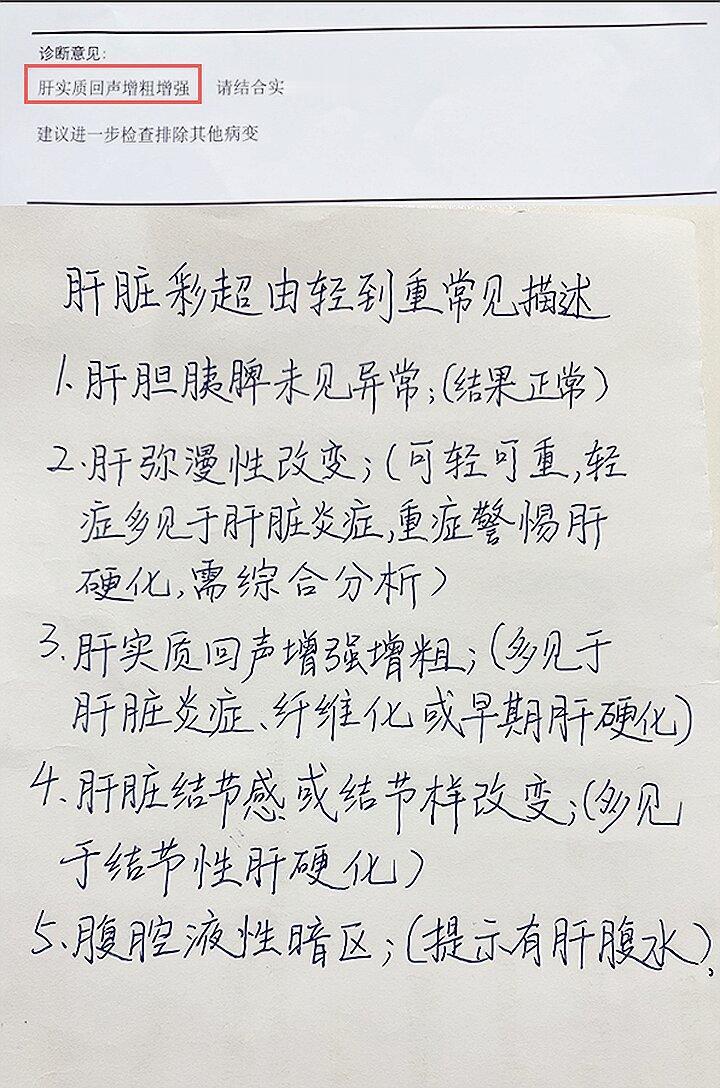 诊断意见:
肝实质回声增粗增强 请结合实
建议进一步检查排除其他病变
肝脏彩超由轻到重常见描述
1.肝胆胰脾未见异常;(结果正常)
2.肝弥漫性改变;(可轻可重,轻
症多见于肝脏炎症,重症警惕肝
硬化,需综合分析)
3.肝实质回声增强增粗;(多见于
肝脏炎症、纤维化或早期肝硬化)
4.肝脏结节感或结节样改变;(多见
于结节性肝硬化)
5.腹腔液性暗区;(提示有肝腹水)。